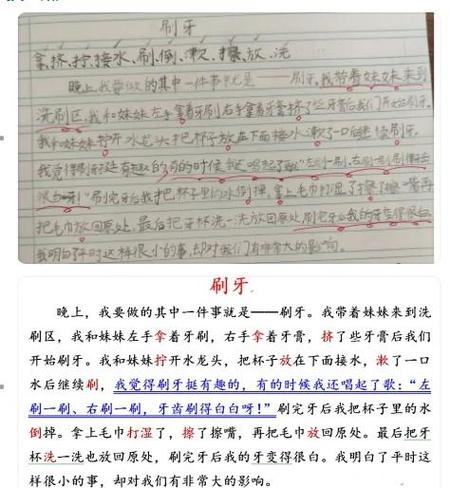 刷牙
拿、挤、拧、接水、刷、倒、漱、擦、放、洗
晚上，我要做的其中一件事就是——刷牙。我带着妹妹来到
洗刷区，我和妹妹左手拿着牙刷右手拿着牙膏挤了些牙膏后我们开始刷牙。
我和妹妹拧开水龙头把杯子放在下面接水漱了一口后继续刷牙。
把毛巾放回原处，最后把牙杯洗一洗放回原处刷完牙后我的牙变得很白。
我明白了平时这样很小的事，却对我们有非常大的影响。
刷牙
晚上，我要做的其中一件事就是——刷牙。我带着妹妹来到洗
刷区，我和妹妹左手拿着牙刷，右手拿着牙膏，挤了些牙膏后我们
开始刷牙。我和妹妹拧开水龙头，把杯子放在下面接水，漱了一口
水后继续刷，我觉得刷牙挺有趣的，有的时候我还唱起了歌：“左
刷一刷、右刷一刷，牙齿刷得白白呀！”刷完牙后我把杯子里的水
倒掉。拿上毛巾打湿了，擦了擦嘴，再把毛巾放回原处。最后把牙
杯洗一洗也放回原处，刷完牙后我的牙变得很白。我明白了平时这
样很小的事，却对我们有非常大的影响。